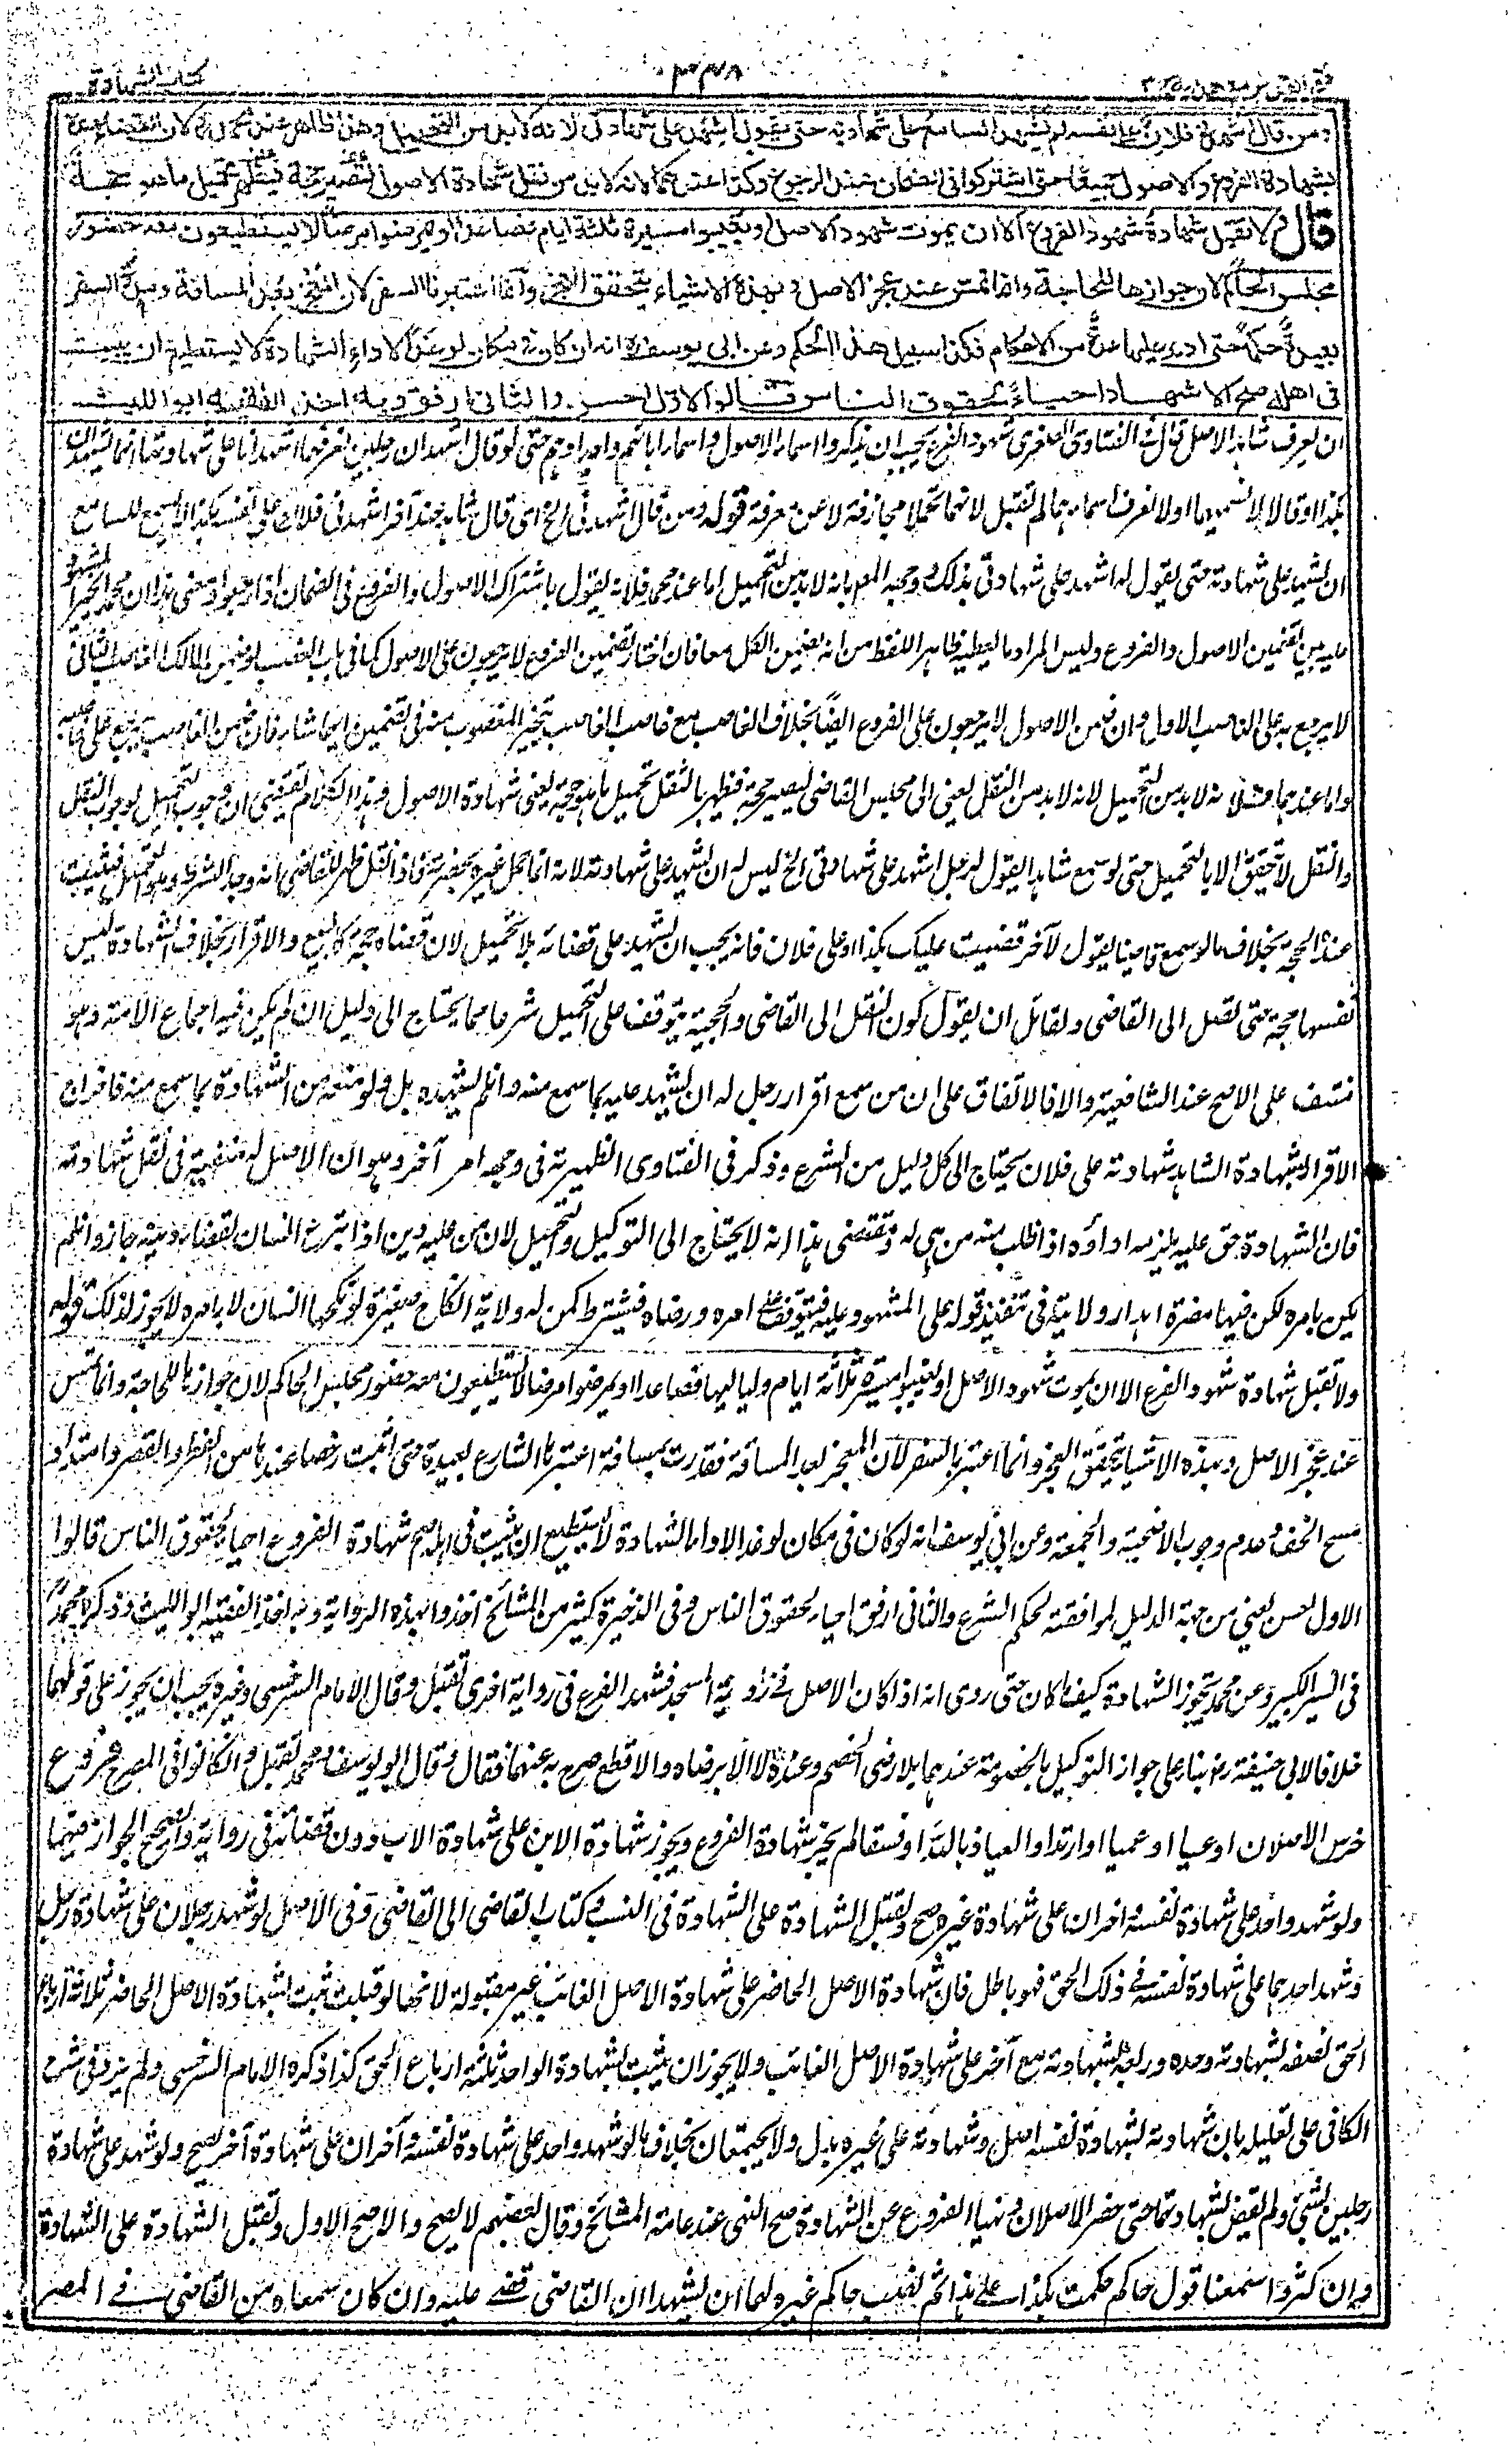 كتاب الشهادة
٣٣٨
فتح القدير مع هداية ج ٣
ومن قال اشهدني فلان على نفسه لم يشهد السامع على شهادته حتى يقول اشهد على شهادتي لانه لا بد من التحميل وهذا ظاهر عند محمد لان القضاء عنده
بشهادة الفروع والاصول جميعا حتى اشتركوا في الضمان عند الرجوع وكذا عندهما لانه لا بد من نقل شهادة الاصول لتصير حجة فيظهر تحميل ما هو حجة
قال ولا تقبل شهادة شهود الفروع الا ان يموت شهود الاصل او يغيبوا مسيرة ثلثة ايام فصاعدا او يمرضوا مرضا لا يستطيعون معه حضور
مجلس الحاكم لان جوازها للحاجة وانما تمس عند عجز الاصل وبهذه الاشياء يتحقق العجز وانما اعتبرنا السفر لان المعجز بعد المسافة ومدة السفر
بعيدة حكما حتى ادير عليها عدة من الاحكام فكذا سبيل هذا الحكم وعن ابي يوسف رح انه ان كان في مكان لو غدا لاداء الشهادة لا يستطيع ان يبيت
في اهله صح الاشهاد احياء لحقوق الناس قالوا الاول احسن والثاني ارفق وبه اخذ الفقيه ابو الليث
ان يعرف شاهد الاصل قال في الفتاوى الصغرى شهود الفرع يجب ان يذكروا اسماء الاصول واسماء ابائهم واجدادهم حتى لو قال اشهد ان رجلين نعرفهما اشهدانا على شهادتهما انهما يشهدان
بكذا وقالا لا نسميهما او لا نعرف اسماءهما لم تقبل لانهما تحملا مجازفة لا عن معرفة قوله ومن قال اشهدني الخ اي قال شاهد عند آخر اشهدني فلان على نفسه بكذا لا يسع للسامع
ان يشهد على شهادته حتى يقول له اشهد على شهادتي بذلك وجه المص بانه لا بد من التحميل اما عند محمد فلانه يقول باشتراك الاصول والفروع في الضمان اذا رجعوا ومعنى هذا ان محمدا يخير المشهود
عليه بين تضمين الاصول والفروع وليس المراد ما يعطيه ظاهر اللفظ من انه يضمن الكل معا فان اختار تضمين الفروع لا يرجعون على الاصول كما في باب الغصب لو ضمن المالك الغاصب الثاني
لا يرجع به على الغاصب الاول وان ضمن الاصول لا يرجعون على الفروع ايضا بخلاف الغاصب مع غاصب الغاصب يتخير المغصوب منه في تضمين ايهما شاء فان ضمن الغاصب يرجع على غاصبه
واما عندهما فلانه لا بد من التحميل لانه لا بد من النقل يعني الى مجلس القاضي ليصير حجة فيظهر بالنقل تحميل ما هو حجة يعني شهادة الاصول وهذا الكلام يقتضي ان وجوب التحميل لوجوب النقل
والنقل لا يتحقق الا بالتحميل حتى لو سمع شاهدا يقول لرجل اشهد على شهادتي الخ ليس له ان يشهد على شهادته لانه انما حمل غيره بحضرته فاذا نقل ظهر للقاضي انه وجد الشرط وهو التحميل فيثبت
عنده الحجة بخلاف ما لو سمع قاضيا يقول لآخر قضيت عليك بكذا او على فلان فانه يجب ان يشهد على قضائه بلا تحميل لان قضاءه حجة كالبيع والاقرار بخلاف الشهادة ليس
نفسها حجة حتى تصل الى القاضي ولقائل ان يقول كون النقل الى القاضي والحجية يتوقف على التحميل شرعا مما يحتاج الى دليل ان لم يكن فيه اجماع الامة وهو
منتف على الاصح عند الشافعية والا فالاتفاق على ان من سمع اقرار رجل له ان يشهد عليه بما سمع منه وان لم يشهده بل ولو منعه من الشهادة بما سمع منه فاخراج
الاقرار بشهادة الشاهد شهادته على فلان يحتاج الى كل دليل من الشرع وذكر في الفتاوى الظهيرية في وجهه امر آخر وهو ان الاصل له منفعة في نقل شهادته
فان الشهادة حق عليه يلزمه اداؤه اذا طلب منه من هي له ومقتضى هذا انه لا يحتاج الى التوكيل والتحميل لان من عليه دين اذا تبرع انسان بقضاء دينه جاز وان لم
يكن بامره لكن فيها مضرة اهدار ولايته في تنفيذ قوله على المشهود عليه فيتوقف على امره ورضاه فيشترط كمن له ولاية انكاح صغيرة لو نكحها انسان لا بامره لا يجوز لذلك قوله
ولا تقبل شهادة شهود الفرع الا ان يموت شهود الاصل او يغيبوا مسيرة ثلاثة ايام ولياليها فصاعدا او يمرضوا مرضا لا يستطيعون معه حضور مجلس الحاكم لان جوازها للحاجة وانما تمس
عند عجز الاصل وبهذه الاشياء يتحقق العجز وانما اعتبرنا السفر لان المعجز بعد المسافة فقدرت بمسافة اعتبرها الشارع بعيدة حتى اثبت رخصا عندها من الفطر والقصر وامتداد
مسح الخف وعدم وجوب الاضحية والجمعة وعن ابي يوسف انه لو كان في مكان لو غدا لاداء الشهادة لا يستطيع ان يبيت في اهله صح شهادة الفروع احياء لحقوق الناس قالوا
الاول احسن يعني من جهة الدليل لموافقته لحكم الشرع والثاني ارفق احياء لحقوق الناس وفي الذخيرة كثير من المشائخ اخذوا بهذه الرواية وبه اخذ الفقيه ابو الليث وذكره محمد
في السير الكبير وعن محمد يجوز الشهادة كيفما كان حتى روي انه اذا كان الاصل في زاوية المسجد فشهد الفرع في زاوية اخرى تقبل وقال الامام السرخسي وغيره يجب ان يجوز على قولهما
خلافا لابي حنيفة رح بناء على جواز التوكيل بالخصومة عندهما بلا رضى الخصم وعنده لا الا برضاه والاقطع صرح به عنهما فقال وقال ابو يوسف ومحمد تقبل وان كانوا في المصر فروع
خرس الاصلان او عميا او ارتدا والعياذ بالله او فسقا لم يجز شهادة الفروع ويجوز شهادة الابن على شهادة الاب دون قضائه في رواية والصحيح الجواز فيهما
ولو شهد واحد على شهادة نفسه وآخران على شهادة غيره صح وتقبل الشهادة على الشهادة في النسب وكتاب القاضي الى القاضي وفي الاصل لو شهد رجلان على شهادة رجل
وشهد احدهما على شهادة نفسه في ذلك الحق فهو باطل فان شهادة الاصل الحاضر على شهادة الاصل الغائب غير مقبولة لانها لو قبلت ثبت بشهادة الاصل الحاضر ثلاثة ارباع
الحق نصفه بشهادته وحده وربعه بشهادته مع آخر على شهادة الاصل الغائب ولا يجوز ان يثبت بشهادة الواحد ثلثة ارباع الحق كذا ذكره الامام السرخسي ولم يزد في شرح
الكافي على تعليله بان شهادته لشهادة نفسه اصل وشهادته على غيره بدل ولا يجتمعان بخلاف ما لو شهد واحد على شهادة نفسه وآخران على شهادة آخر يصح ولو شهد على شهادة
رجلين بشيء ولم يقض بشهادتهما حتى حضر الاصلان ونهيا الفروع عن الشهادة صح النهي عند عامة المشائخ وقال بعضهم لا يصح والاصح الاول وتقبل الشهادة على الشهادة
وان كثروا سمعنا قول حاكم حكمت بكذا على هذا ثم نصب حاكم غيره لهما ان يشهدا ان القاضي قضى عليه وان كان سمعاه من القاضي في المصر